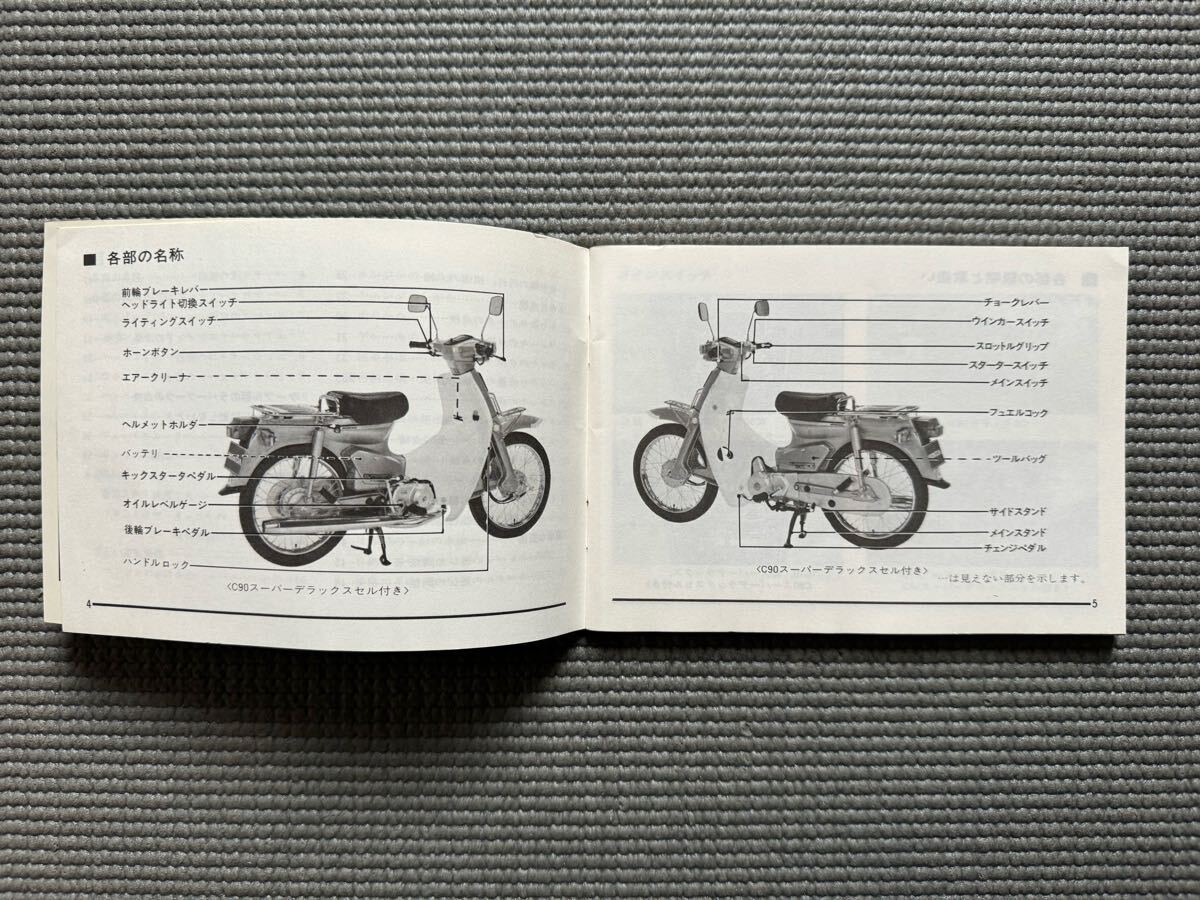 ■ 各部の名称
前輪ブレーキレバー
ヘッドライト切換スイッチ
ライティングスイッチ
ホーンボタン
エアークリーナ
ヘルメットホルダー
バッテリ
キックスタータペダル
オイルレベルゲージ
後輪ブレーキペダル
ハンドルロック
〈C90スーパーデラックスセル付き〉
4
チョークレバー
ウインカースイッチ
スロットルグリップ
スタータースイッチ
メインスイッチ
フュエルコック
ツールバッグ
サイドスタンド
メインスタンド
チェンジペダル
〈C90スーパーデラックスセル付き〉
…は見えない部分を示します。
5